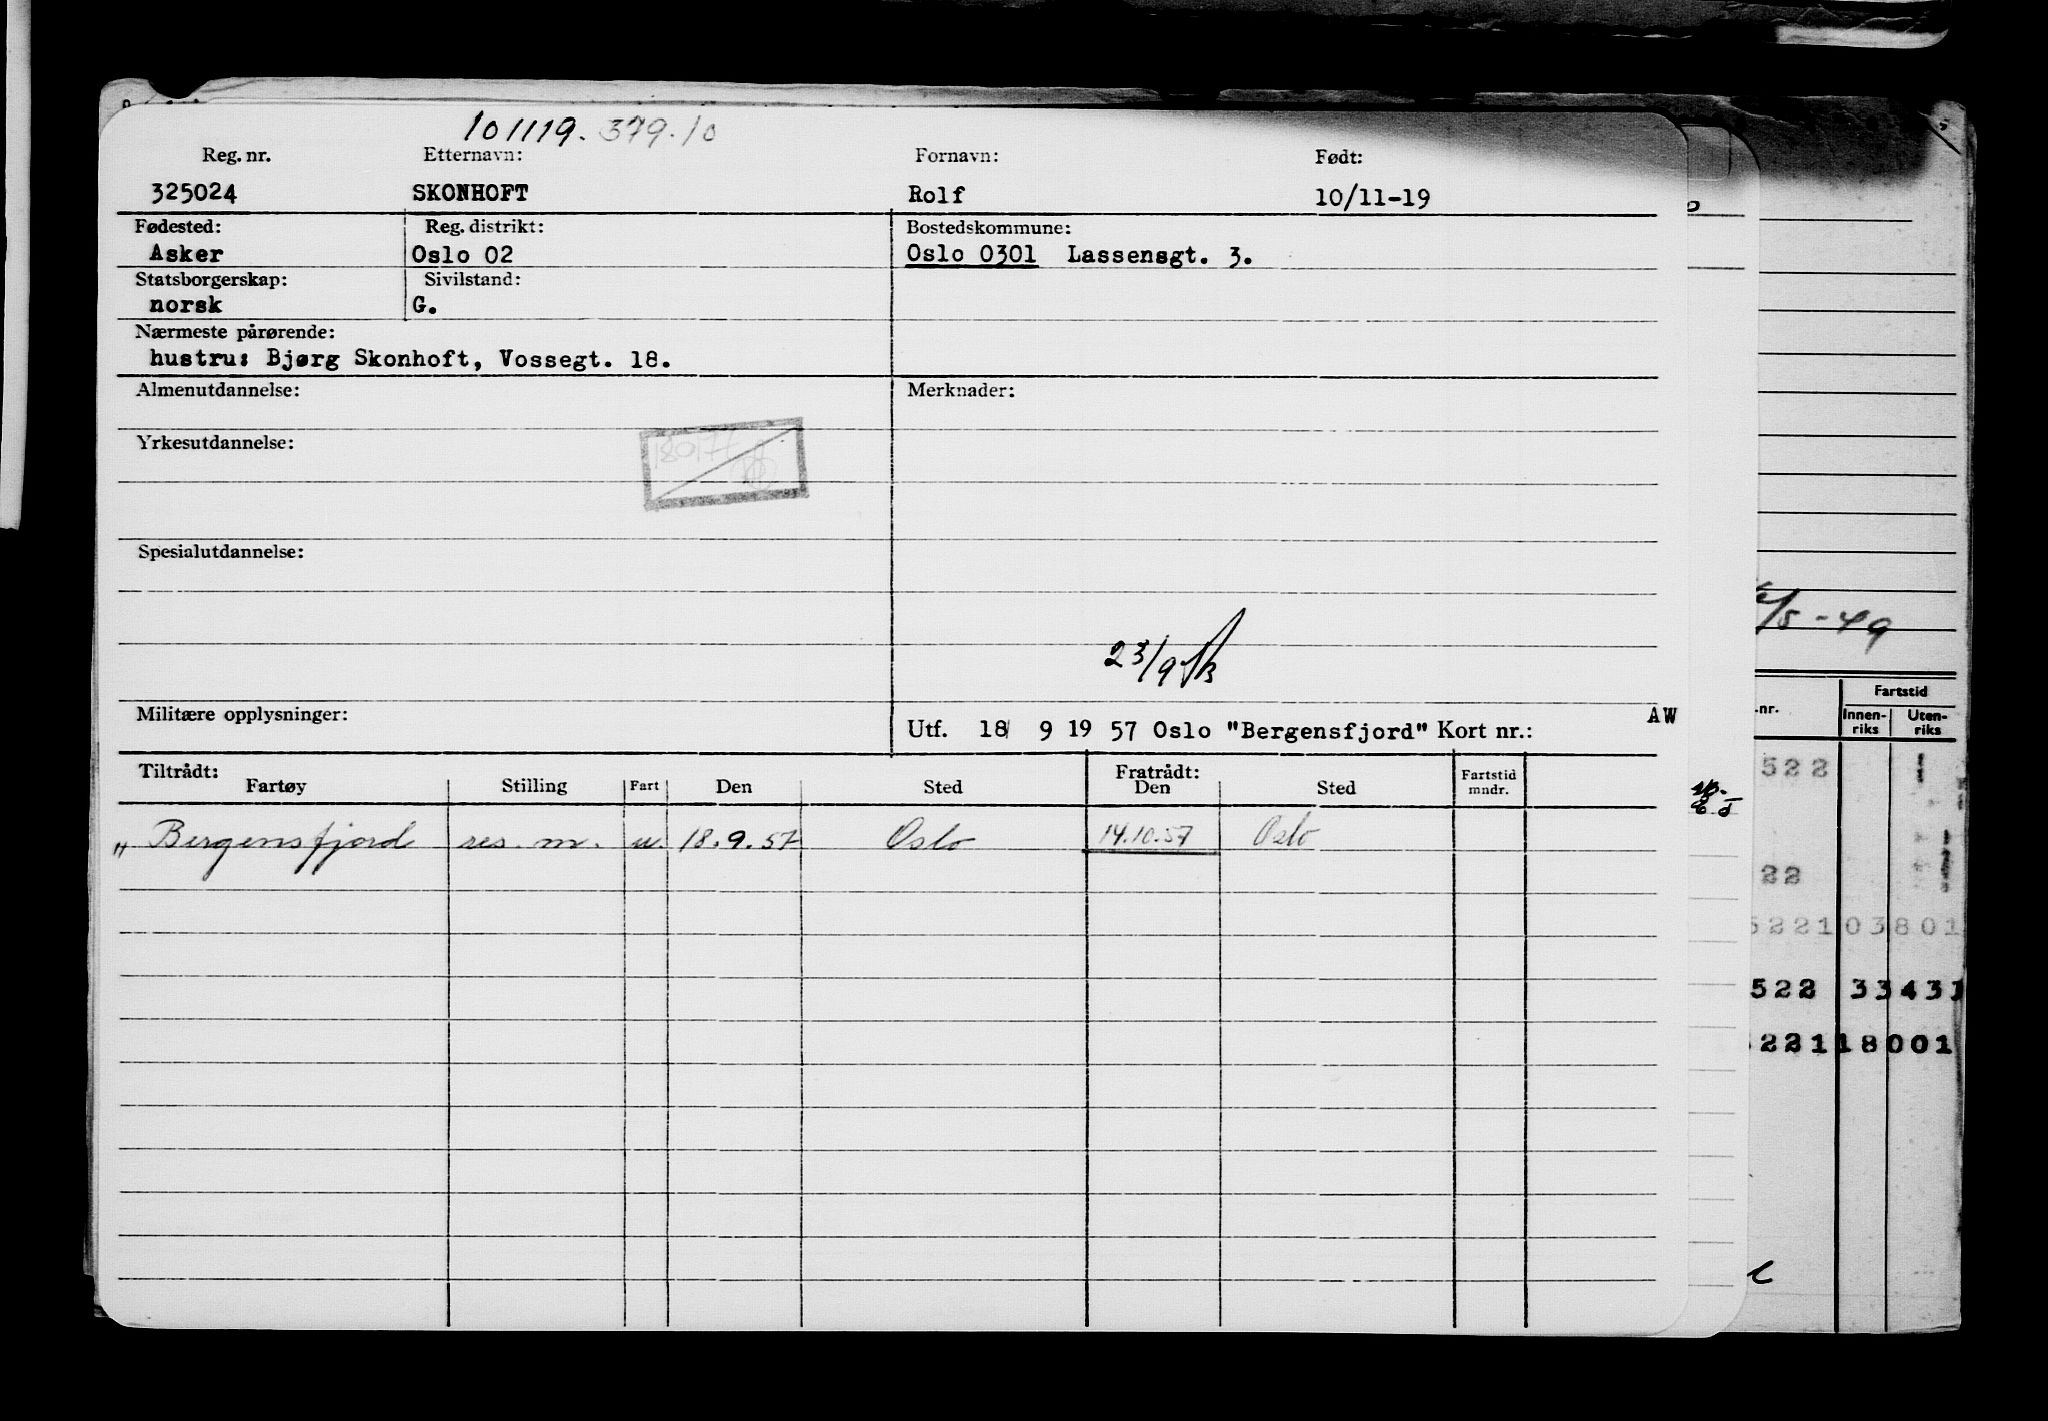 101119. 379.10
Reg. nr. Etternavn: Fornavn: Født:
325024 SKONHOFT Rolf 10/11-19
Fødested: Reg. distrikt: Bostedskommune:
Asker Oslo 02 Oslo 0301 Lassensgt. 3.
Statsborgerskap: Sivilstand:
norsk G.
Nærmeste pårørende:
hustru: Bjørg Skonhoft, Vossegt. 18.
Almenutdannelse: Merknader:
Yrkesutdannelse:
Spesialutdannelse:
/5-49
23/9
Fartstid
Militære opplysninger: AW .nr. Innen- Uten-
riks riks
Utf. 18/ 9 19 57 Oslo "Bergensfjord" Kort nr.:
Tiltrådt: Fratrådt: Fartstid 522
Fartøy Stilling Fart Den Sted Den Sted mndr.
„ Bergensfjord res. m. u. 18.9.57 Oslo 14.10.57 Oslo
22
5221 03801
522 33431
2211 8001